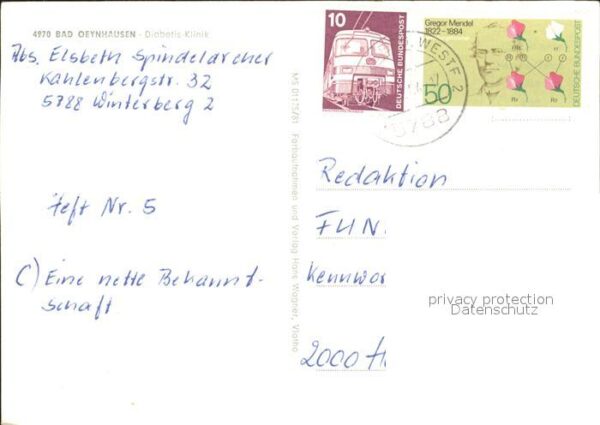 4970 BAD OEYNHAUSEN - Diabetis-Klinik
Abs. Elsbeth Spindelarcher
Kahlenbergstr. 32
5788 Winterberg 2
Heft Nr. 5
C) Eine nette Bekannt-
schaft
Farbaufnahmen und Verlag Hans Wagner, Vlotho
10
DEUTSCHE BUNDESPOST
Gregor Mendel
1822-1884
50
DEUTSCHE BUNDESPOST
WESTF 2
5788
Redaktion
FUN
Kennwor
2000 H
privacy protection
Datenschutz